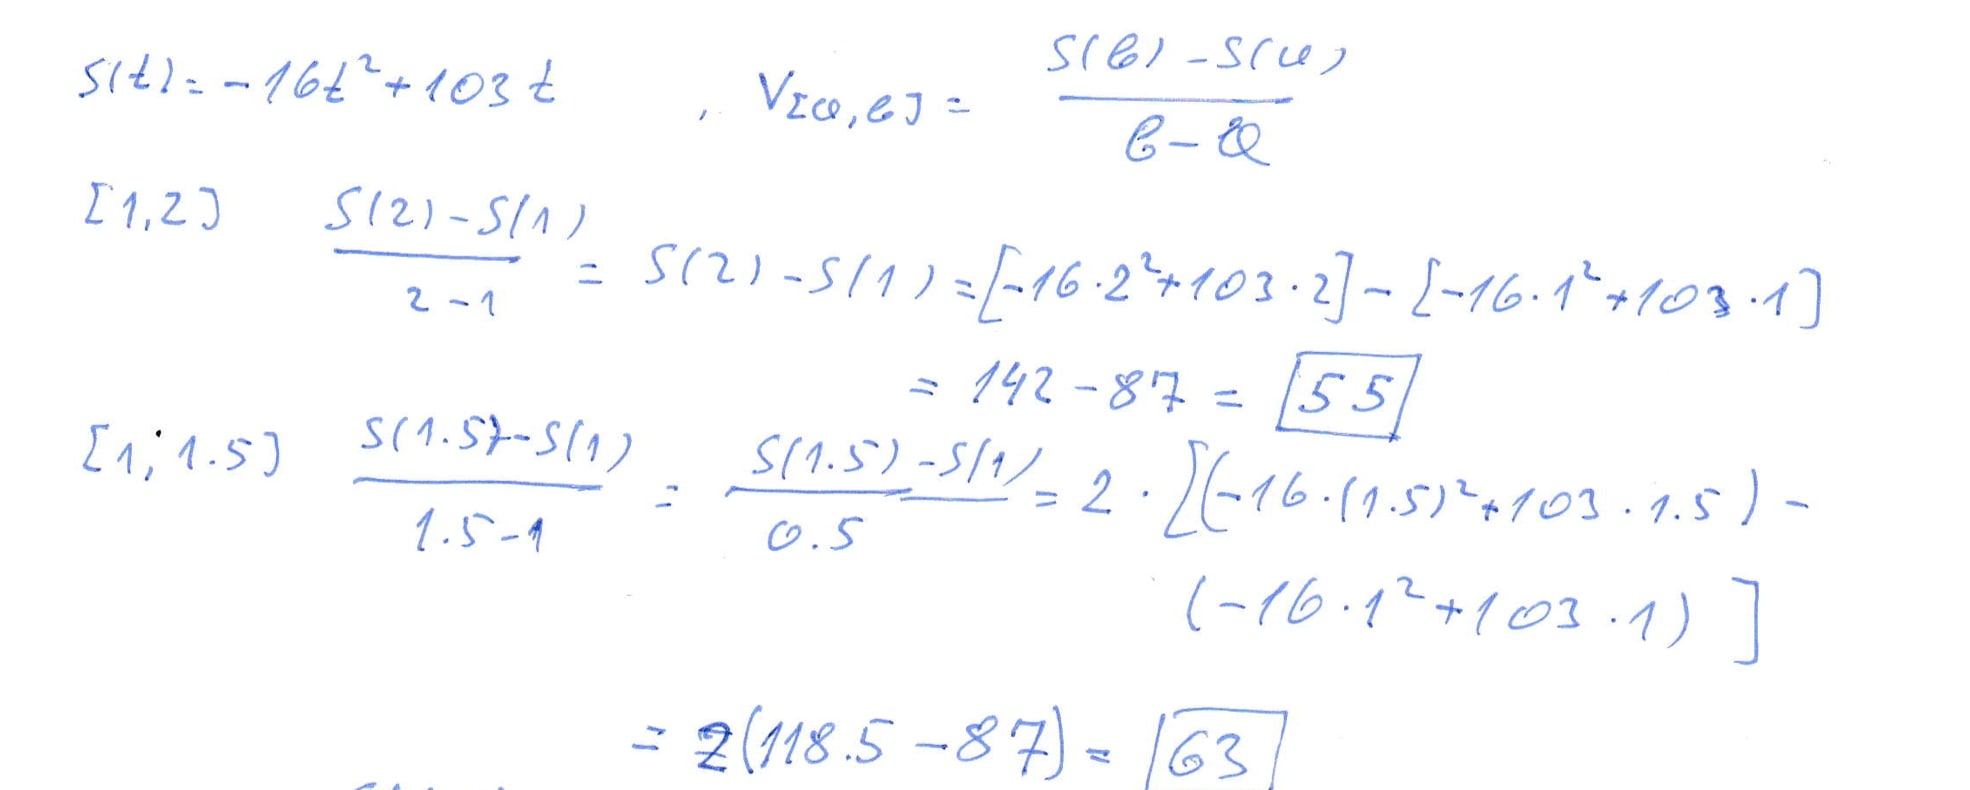 S(t) = -16t²+103t , V[a,b] = (S(b) - S(a)) / (b - a)
[1,2] (S(2) - S(1)) / (2 - 1) = S(2) - S(1) = [-16·2²+103·2] - [-16·1²+103·1]
= 142 - 87 = 55
[1, 1.5] (S(1.5) - S(1)) / (1.5 - 1) = (S(1.5) - S(1)) / 0.5 = 2 · [(-16·(1.5)²+103·1.5) -
(-16·1²+103·1)]
= 2(118.5 - 87) = 63